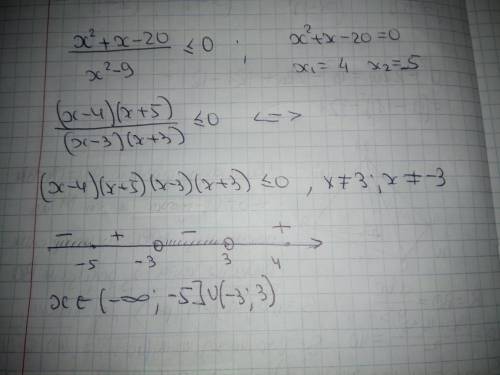 (x²+x-20)/(x²-9) ≤ 0 ; x²+x-20=0
x₁=4 x₂=-5
((x-4)(x+5))/((x-3)(x+3)) ≤0 <=>
(x-4)(x+5)(x-3)(x+3) ≤0 , x≠3; x≠-3
- + - +
-5 -3 3 4
x∈(-∞; -5]∪(-3; 3)